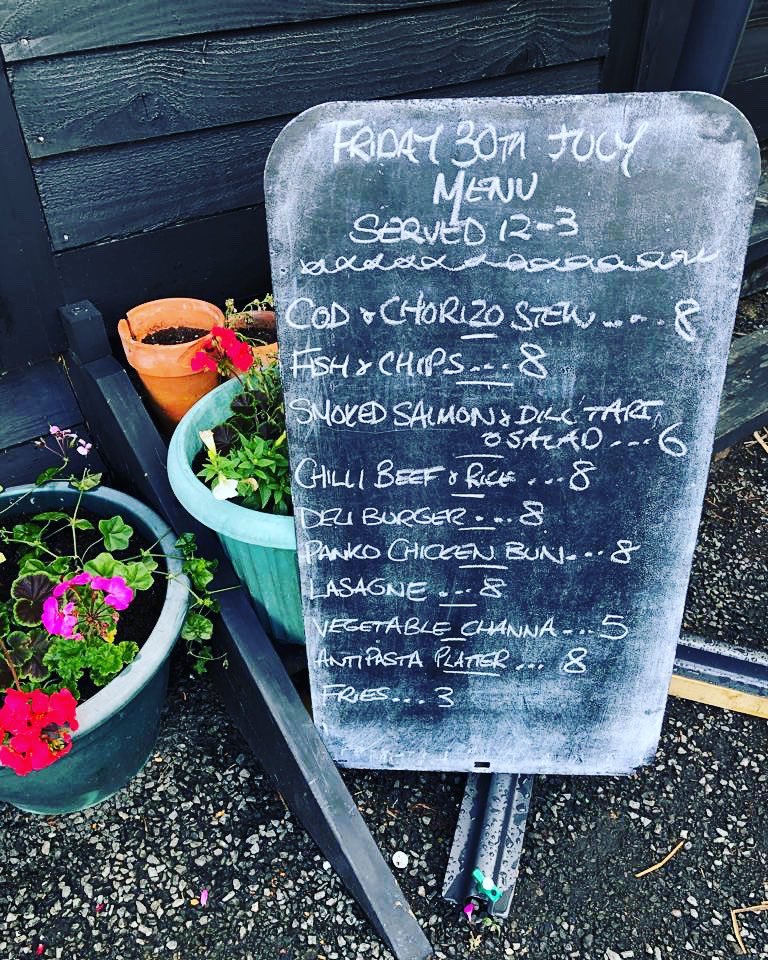 FRIDAY 30TH JULY
MENU
SERVED 12-3
COD & CHORIZO STEW .... 8
FISH & CHIPS... 8
SMOKED SALMON & DILL TART
& SALAD ... 6
CHILLI BEEF & RICE ... 8
DELI BURGER... 8
PANKO CHICKEN BUN... 8
LASAGNE ... 8
VEGETABLE CHANNA ... 5
ANTIPASTA PLATTER... 8
FRIES... 3